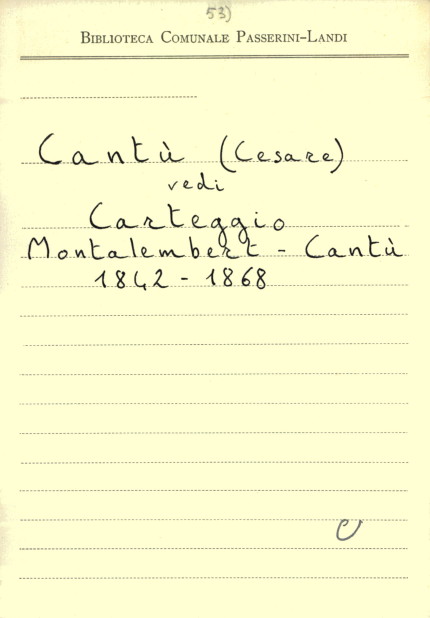 53)
BIBLIOTECA COMUNALE PASSERINI-LANDI
Cantù (Cesare)
vedi
Carteggio
Montalembert - Cantù
1842 - 1868